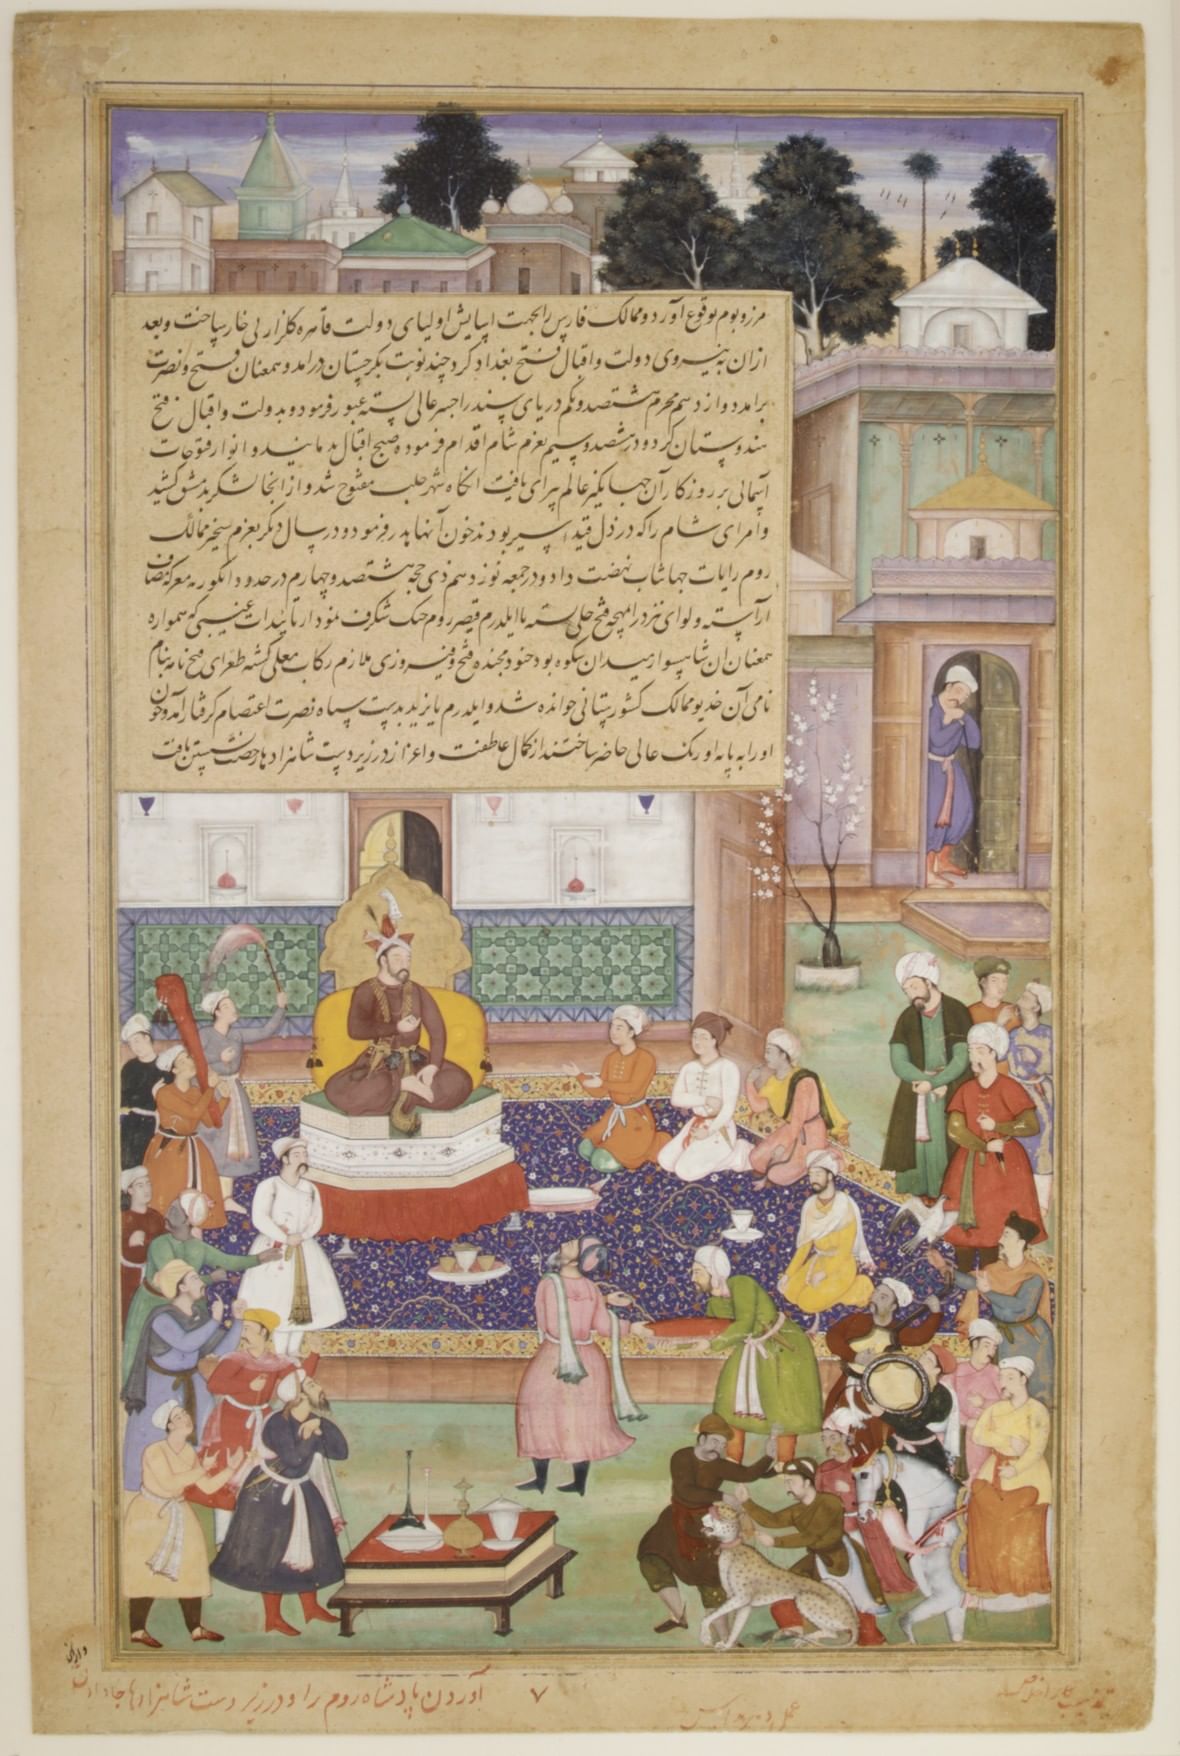 مرز و بوم بوقوع آورد و ممالک فارس را بجهت آسایش اولیای دولت قاهره گلزار بی خار ساخت و بعد
ازان به نیروی دولت و اقبال فتح بغداد کرد چند نوبت بگرجستان درآمد و همعنان فتح و نصرت
برآمد دوازدهم محرم هشتصد و یکم دریای سند را جسر عالی بسته عبور فرمود و بدولت و اقبال فتح
هندوستان کرد و در هشتصد و سیم بعزم شام اقدام فرموده صبح اقبال بدمانید و انوار فتوحات
آسمانی بر روزگار آن جهانگیر عالم پیرای یافت آنگاه شهر حلب مفتوح شد و از آنجا لشکر بدمشق کشید
و امرای شام را که در ذل قید اسیر بودند خون آنها هدر فرمود و در سال دیگر بعزم تسخیر ممالک
روم رایات جهانتاب نهضت داد و در جمعه نوزدهم ذی حجه هشتصد و چهارم در حدود انگوریه معرکه مصاف
آراسته و لوای فتح بسته با ایلدرم قیصر روم جنگ شگرف نمود از تائیدات غیبی که همواره
همعنان آن شاهسوار میدان شکوه بود جنود مجنده فتح و فیروزی ملازم رکاب معلی گشته طغرای فتح نامه بنام
نامی آن خدیو ممالک کشورستانی خوانده شد و ایلدرم بایزید بدست سپاه نصرت اعتصام گرفتار آمد و چون
او را به پایه اورنگ عالی حاضر ساختند از کمال عاطفت و اعزاز در زیر دست شاهزادها رخصت نشستن یافت
آوردن پادشاه روم را و در زیر دست شاهزادها جا دادن
۷
عمل